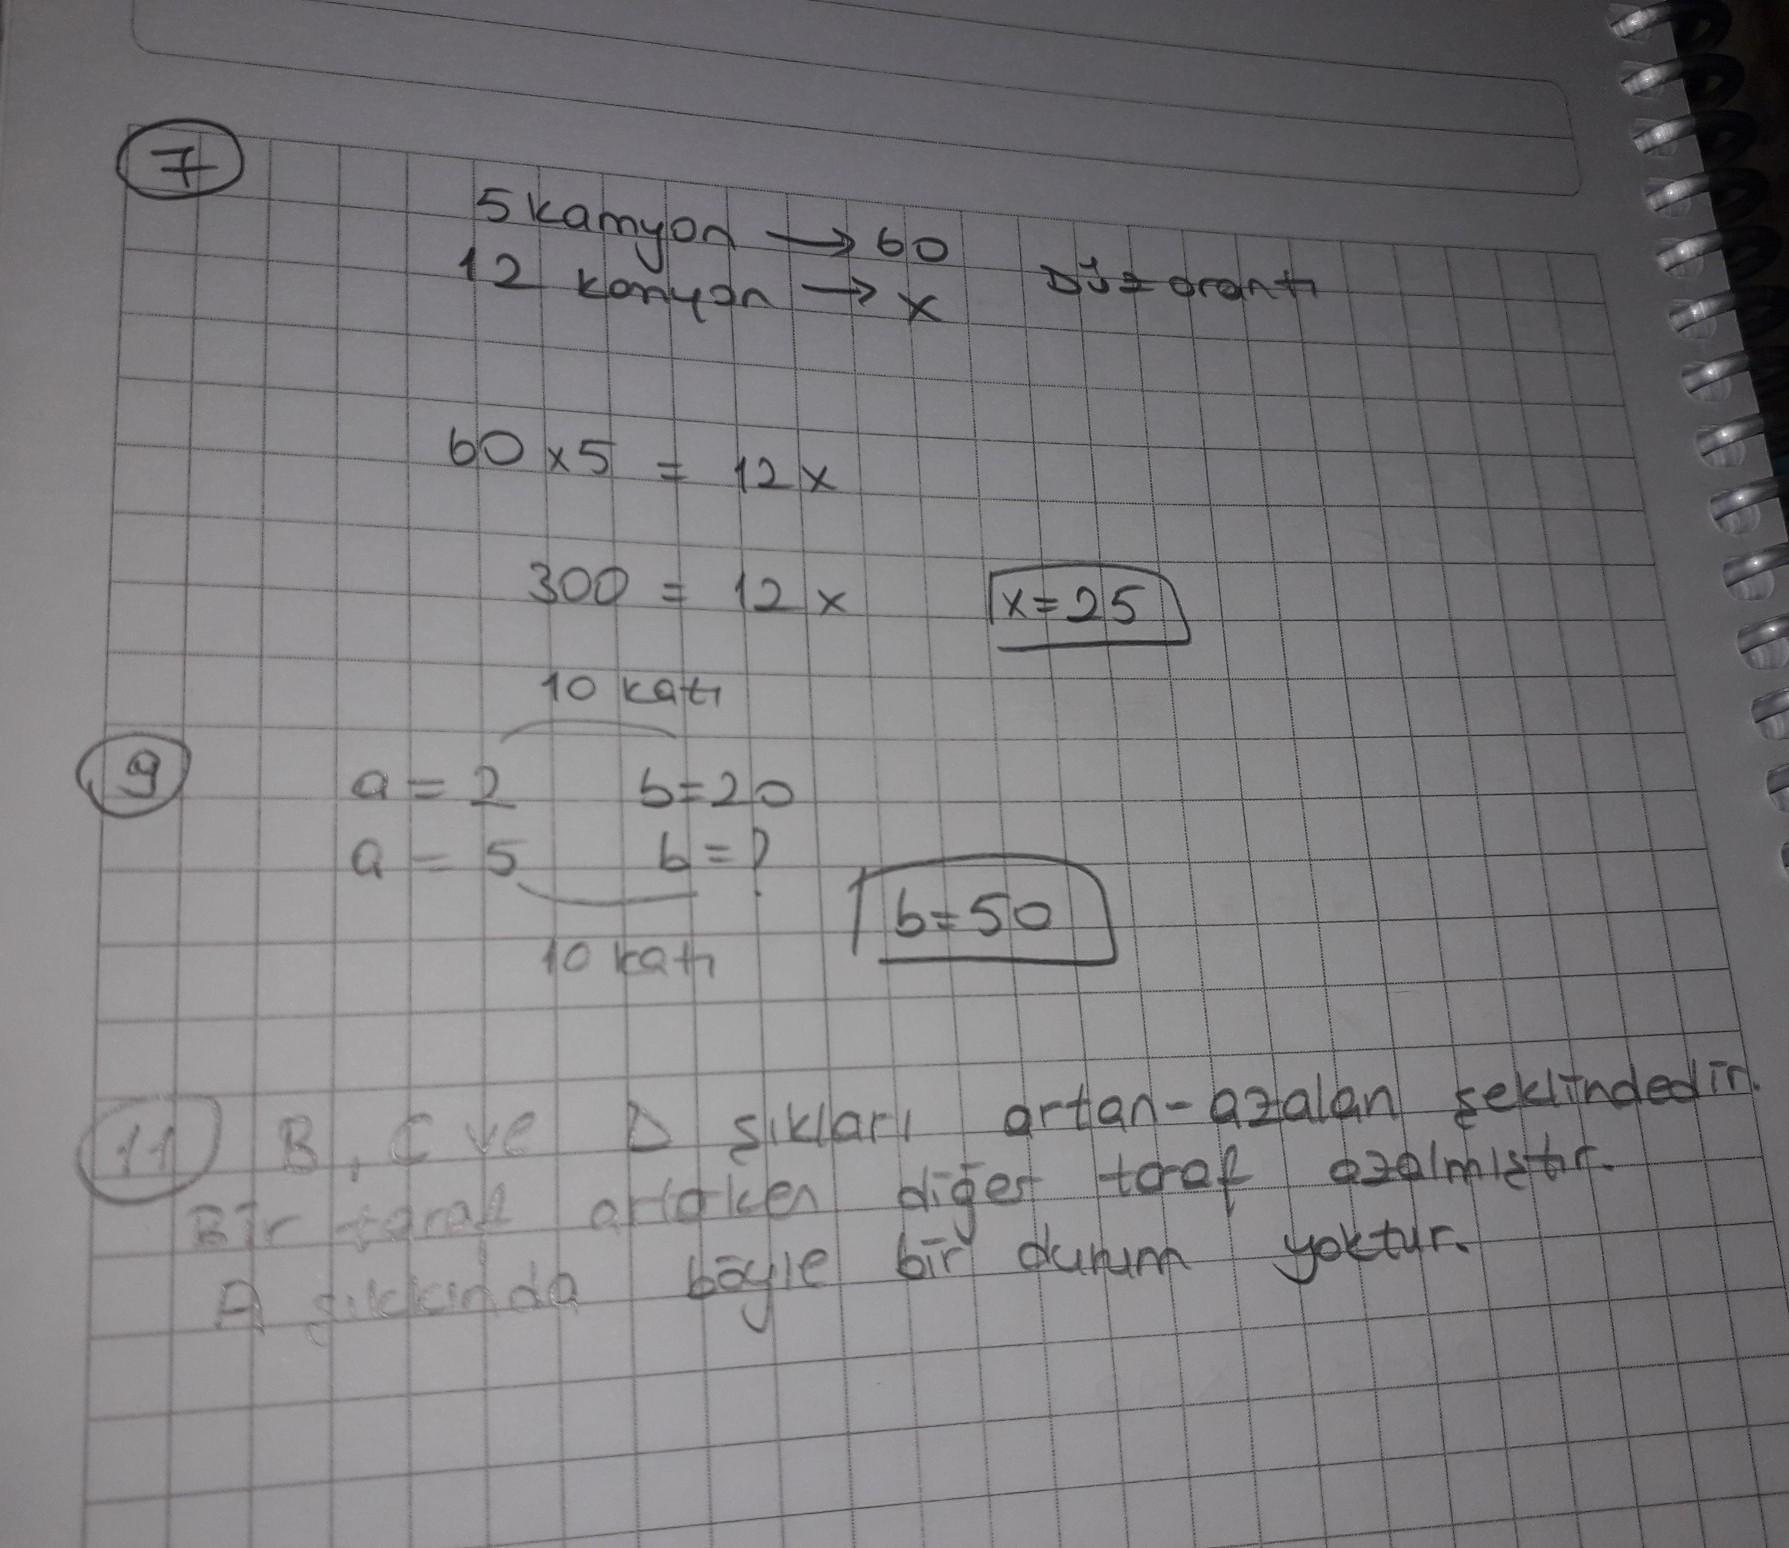 7
5 kamyon → 60
12 kamyon → x Düz orantı
60 x 5 = 12x
300 = 12x x=25
10 katı
9
a = 2 b=20
a = 5 b=?
b=50
10 katı
11 B, C ve D şıkları artan-azalan şeklindedir.
Bir taraf artarken diğer taraf azalmıştır.
A şıkkında böyle bir durum yoktur.